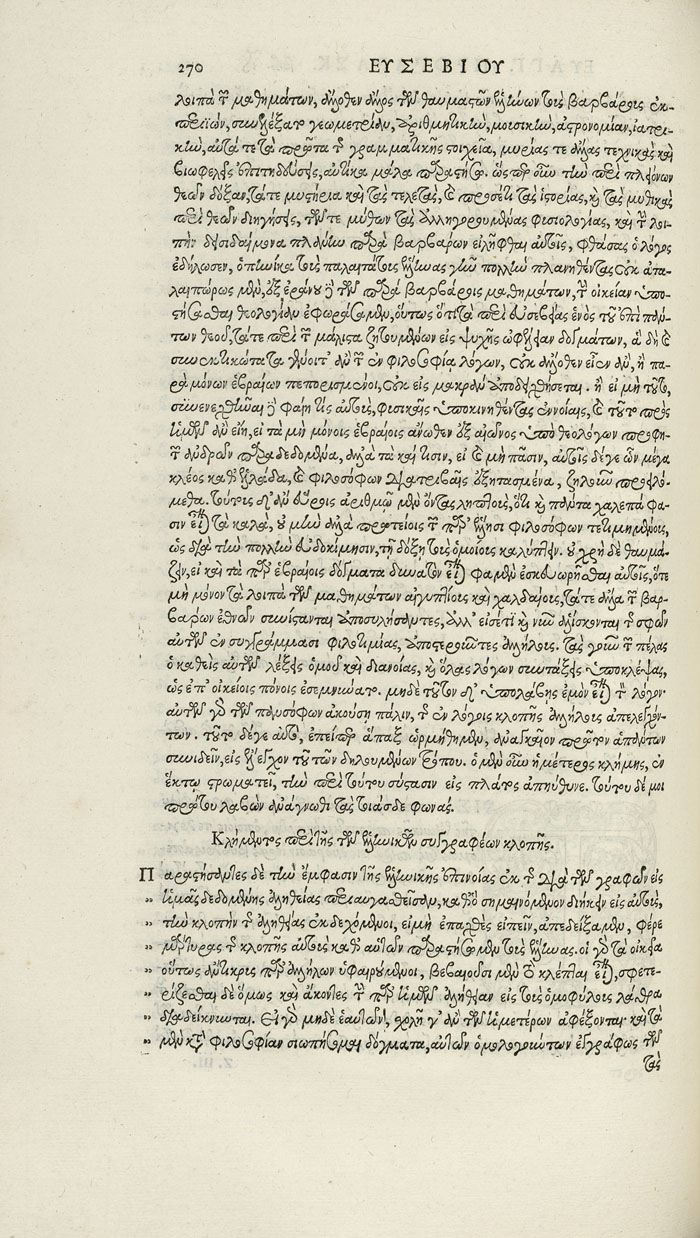 270 ΕΥΣΕΒΙΟΥ
λοιπὰ τῶν μαθημάτων, ἄλλοθεν ἄλλος τῶν θαυμαστῶν ἑλλήνων τοὺς βαρβάρους ἐκ-
περιϊών, συνελέξατο γεωμετρίαν, ἀριθμητικὴν, μουσικὴν, ἀστρονομίαν, ἰατρι-
κὴν, αὐτά τε τὰ πρῶτα τῆς γραμματικῆς στοιχεῖα, μυρίας τε ἄλλας τεχνικὰς καὶ
βιωφελεῖς ἐπιτηδεύσεις, αὐτίκα μάλα παραστήσω. ὥσπερ οὖν τὴν περὶ πλειόνων
θεῶν δόξαν, τά τε μυστήρια καὶ τὰς τελετὰς, καὶ προσέτι τὰς ἱστορίας, καὶ τὰς μυθικὰς
περὶ θεῶν διηγήσεις, τῶν τε μύθων τὰς ἀλληγορουμένας φυσιολογίας, καὶ τὴν λοι-
πὴν δεισιδαίμονα πλάνην παρὰ βαρβάρων εἰλῆφθαι αὐτοῖς, φθάσας ὁ λόγος
ἐδήλωσεν, ὁπηνίκα τοὺς παλαιτάτους ἕλληνας γῆν πολλὴν πλανηθέντας οὐκ ἀτα-
λαιπώρως μὲν, ἐξ ἐράνου δὲ τῶν παρὰ βαρβάροις μαθημάτων, τὴν οἰκείαν ὑπο-
στήσασθαι θεολογίαν ἐφωράσαμεν, οὕτως ὅτι τὰ περὶ εὐσεβείας ἑνὸς τοῦ ἐπὶ πάν-
των θεοῦ, τά τε περὶ τῶν μάλιστα ζητουμένων εἰς ψυχῆς ὠφέλειαν δογμάτων, ἃ δὴ καὶ
συνεκτικώτατα γένοιτ' ἂν τῶν ἐν φιλοσοφίᾳ λόγων, οὐκ ἄλλοθεν εἶεν ἂν, ἢ πα-
ρὰ μόνων ἑβραίων πεπορισμένοι, οὐκ εἰς μακρὰν ἀποδειχθήσεται. ἢ εἰ μὴ τοῦτο,
συνενεχθῆναι δὲ φαίη τις αὐτοὺς, φυσικαῖς ὑποκινηθέντας ἐννοίαις, καὶ τοῦτο πρὸς
ἡμῶν ἂν εἴη, εἰ τὰ μὴ μόνοις ἑβραίοις ἄνωθεν ἐξ αἰῶνος ὑπὸ θεολόγων προφη-
τῶν ἀνδρῶν παραδεδομένα, ἀλλὰ τὰ καί τισιν, εἰ καὶ μὴ πᾶσιν, αὐτοῖς δέ γε ὧν μέγα
κλέος καθ' ἑλλάδα, καὶ φιλοσόφων διατριβαῖς ἐξητασμένα, ζηλοῦν προειλό-
μεθα. τούτους δ' ἂν εὕροις ἀριθμῷ μὲν ὄντας ληπτοὺς, ὅτι καὶ πάντα χαλεπά φα-
σιν εἶναι τὰ καλά, οὐ μὴν ἀλλὰ πρωτείοις τῶν παρ' ἕλλησι φιλοσόφων τετιμημένους,
ὡς διὰ τὴν πολλὴν εὐδοκίμησιν, τῇ δόξῃ τοὺς ὁμοίους καλύπτειν. οὐ χρὴ δὲ θαυμά-
ζειν, εἰ καὶ τὰ παρ' ἑβραίοις δόγματα δυνατὸν εἶναι φαμὲν ἐσκευωρῆσθαι αὐτοῖς, ὅτε
μὴ μόνον τὰ λοιπὰ τῶν μαθημάτων αἰγυπτίους καὶ χαλδαίους, τά τε ἄλλα τῶν βαρ-
βάρων ἐθνῶν συνίστανται ἀποσυλήσαντες, ἀλλ' εἰσέτι καὶ νῦν ἁλίσκονται τῶν σφῶν
αὐτῶν ἐν συγγράμμασι φιλοτιμίας, ἀποστεροῦντες ἀλλήλους. τὰς γοῦν τῶν πέλας
ὁ καθεῖς αὐτῶν λέξεις ὁμοῦ καὶ διανοίας, καὶ ὅλας λόγων συντάξεις ὑποκλέψας,
ὡς ἐπ' οἰκείοις πόνοις ἐσεμνύνατο. μηδὲ τοῦτον δ' ὑπολάβῃς ἐμὸν εἶναι τὸν λόγον·
αὐτῶν γὰρ τῶν πανσόφων ἀκούσῃ πάλιν, τῶν ἐν λόγοις κλοπῆς ἀλλήλους ἀπελεγχόν-
των. τοῦτο δέ γε αὐτὸ, ἐπείπερ ἅπαξ ὡρμήθημεν, ἀναγκαῖον πρῶτον ἁπάντων
συνιδεῖν, εἰς ἔλεγχον τοῦ τῶν δηλουμένων τρόπου. ὁ μὲν οὖν ἡμέτερος κλήμης, ἐν
ἕκτῳ στρωματεῖ, τὴν περὶ τούτου σύστασιν εἰς πλάτος ἀπηύθυνε. τούτου δέ μοι
πρώτου λαβὼν ἀνάγνωθι τὰς τοιάσδε φωνάς.
Κλήμεντος περὶ τῆς τῶν ἑλληνικῶν συγγραφέων κλοπῆς.
Παραστήσαντες δὲ τὴν ἔμφασιν τῆς ἑλληνικῆς ἐπινοίας ἐκ τῆς διὰ τῶν γραφῶν εἰς
» ἡμᾶς δεδομένης ἀληθείας περιαυγασθεῖσαν, καθ' ὃ σημαινόμενον διήκειν εἰς αὐτοὺς,
» τὴν κλοπὴν τῆς ἀληθείας ἐκδεχόμενοι, εἰ μὴ ἐπαχθὲς εἰπεῖν, ἀπεδείξαμεν, φέρε
» μάρτυρας τῆς κλοπῆς αὐτοὺς καθ' αὑτῶν παραστήσωμεν τοὺς ἕλληνας. οἱ γὰρ τὰ οἰκεῖα
» οὕτως ἄντικρυς παρ' ἀλλήλων ὑφαιρούμενοι, βεβαιοῦσι μὲν τὸ κλέπται εἶναι, σφετε-
» ρίζεσθαι δὲ ὅμως καὶ ἄκοντες τὴν παρ' ἡμῶν ἀλήθειαν εἰς τοὺς ὁμοφύλους λάθρα
» διαδείκνυνται. Εἰ γὰρ μηδὲ ἑαυτῶν, σχολῇ γ' ἂν τῶν ἡμετέρων ἀφέξονται· καὶ τὰ
» μὲν κατὰ φιλοσοφίαν σιωπήσομαι δόγματα, αὐτῶν ὁμολογούντων ἐγγράφως τῶν
τὰς